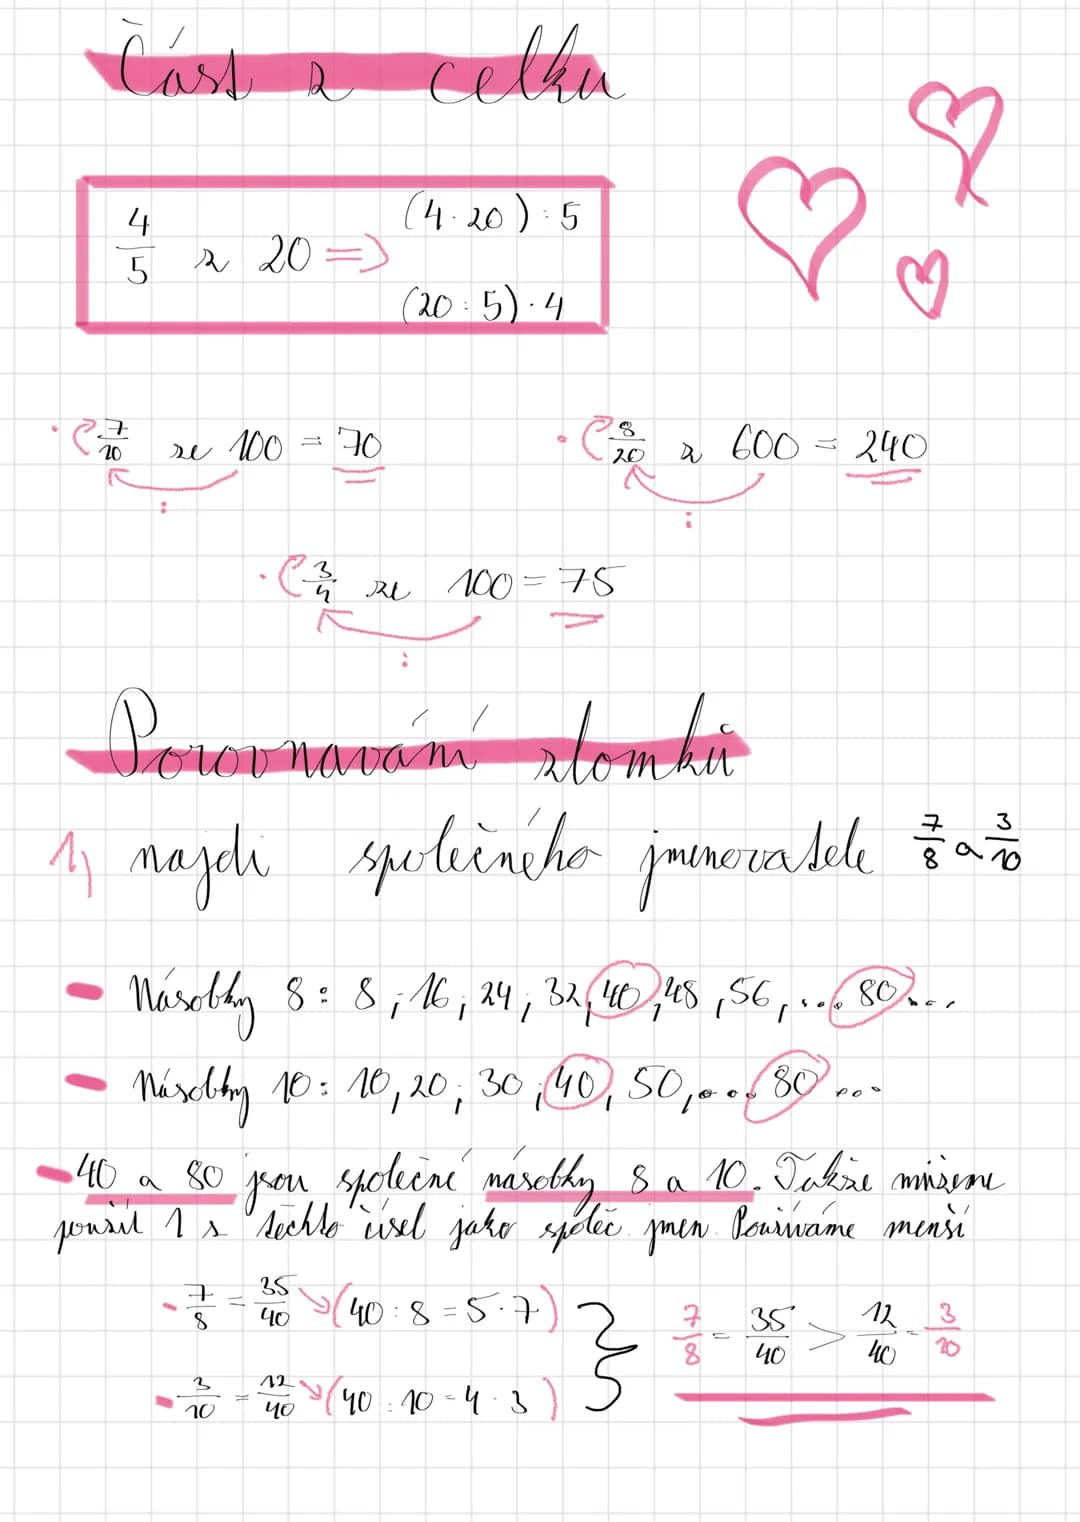 Část z celku
(4·20):5
4/5 z 20 =>
(20:5)·4
· 7/10 ze 100 = 70
:
· 8/20 z 600 = 240
:
· 3/4 ze 100 = 75
:
Porovnavání zlomků
1) najdi společného jmenovatele 7/8 a 3/10
- Násobky 8: 8; 16; 24; 32, 40, 48, 56, .... 80 ...
- Násobky 10: 10, 20; 30; 40, 50, .... 80 ...
- 40 a 80 jsou společné násobky 8 a 10. Takže můžeme
použít 1 z těchto čísel jako společ. jmen. Používáme menší
- 7/8 = 35/40 (40:8=5·7)
- 3/10 = 12/40 (40:10=4·3)
7/8 = 35/40 > 12/40 = 3/10